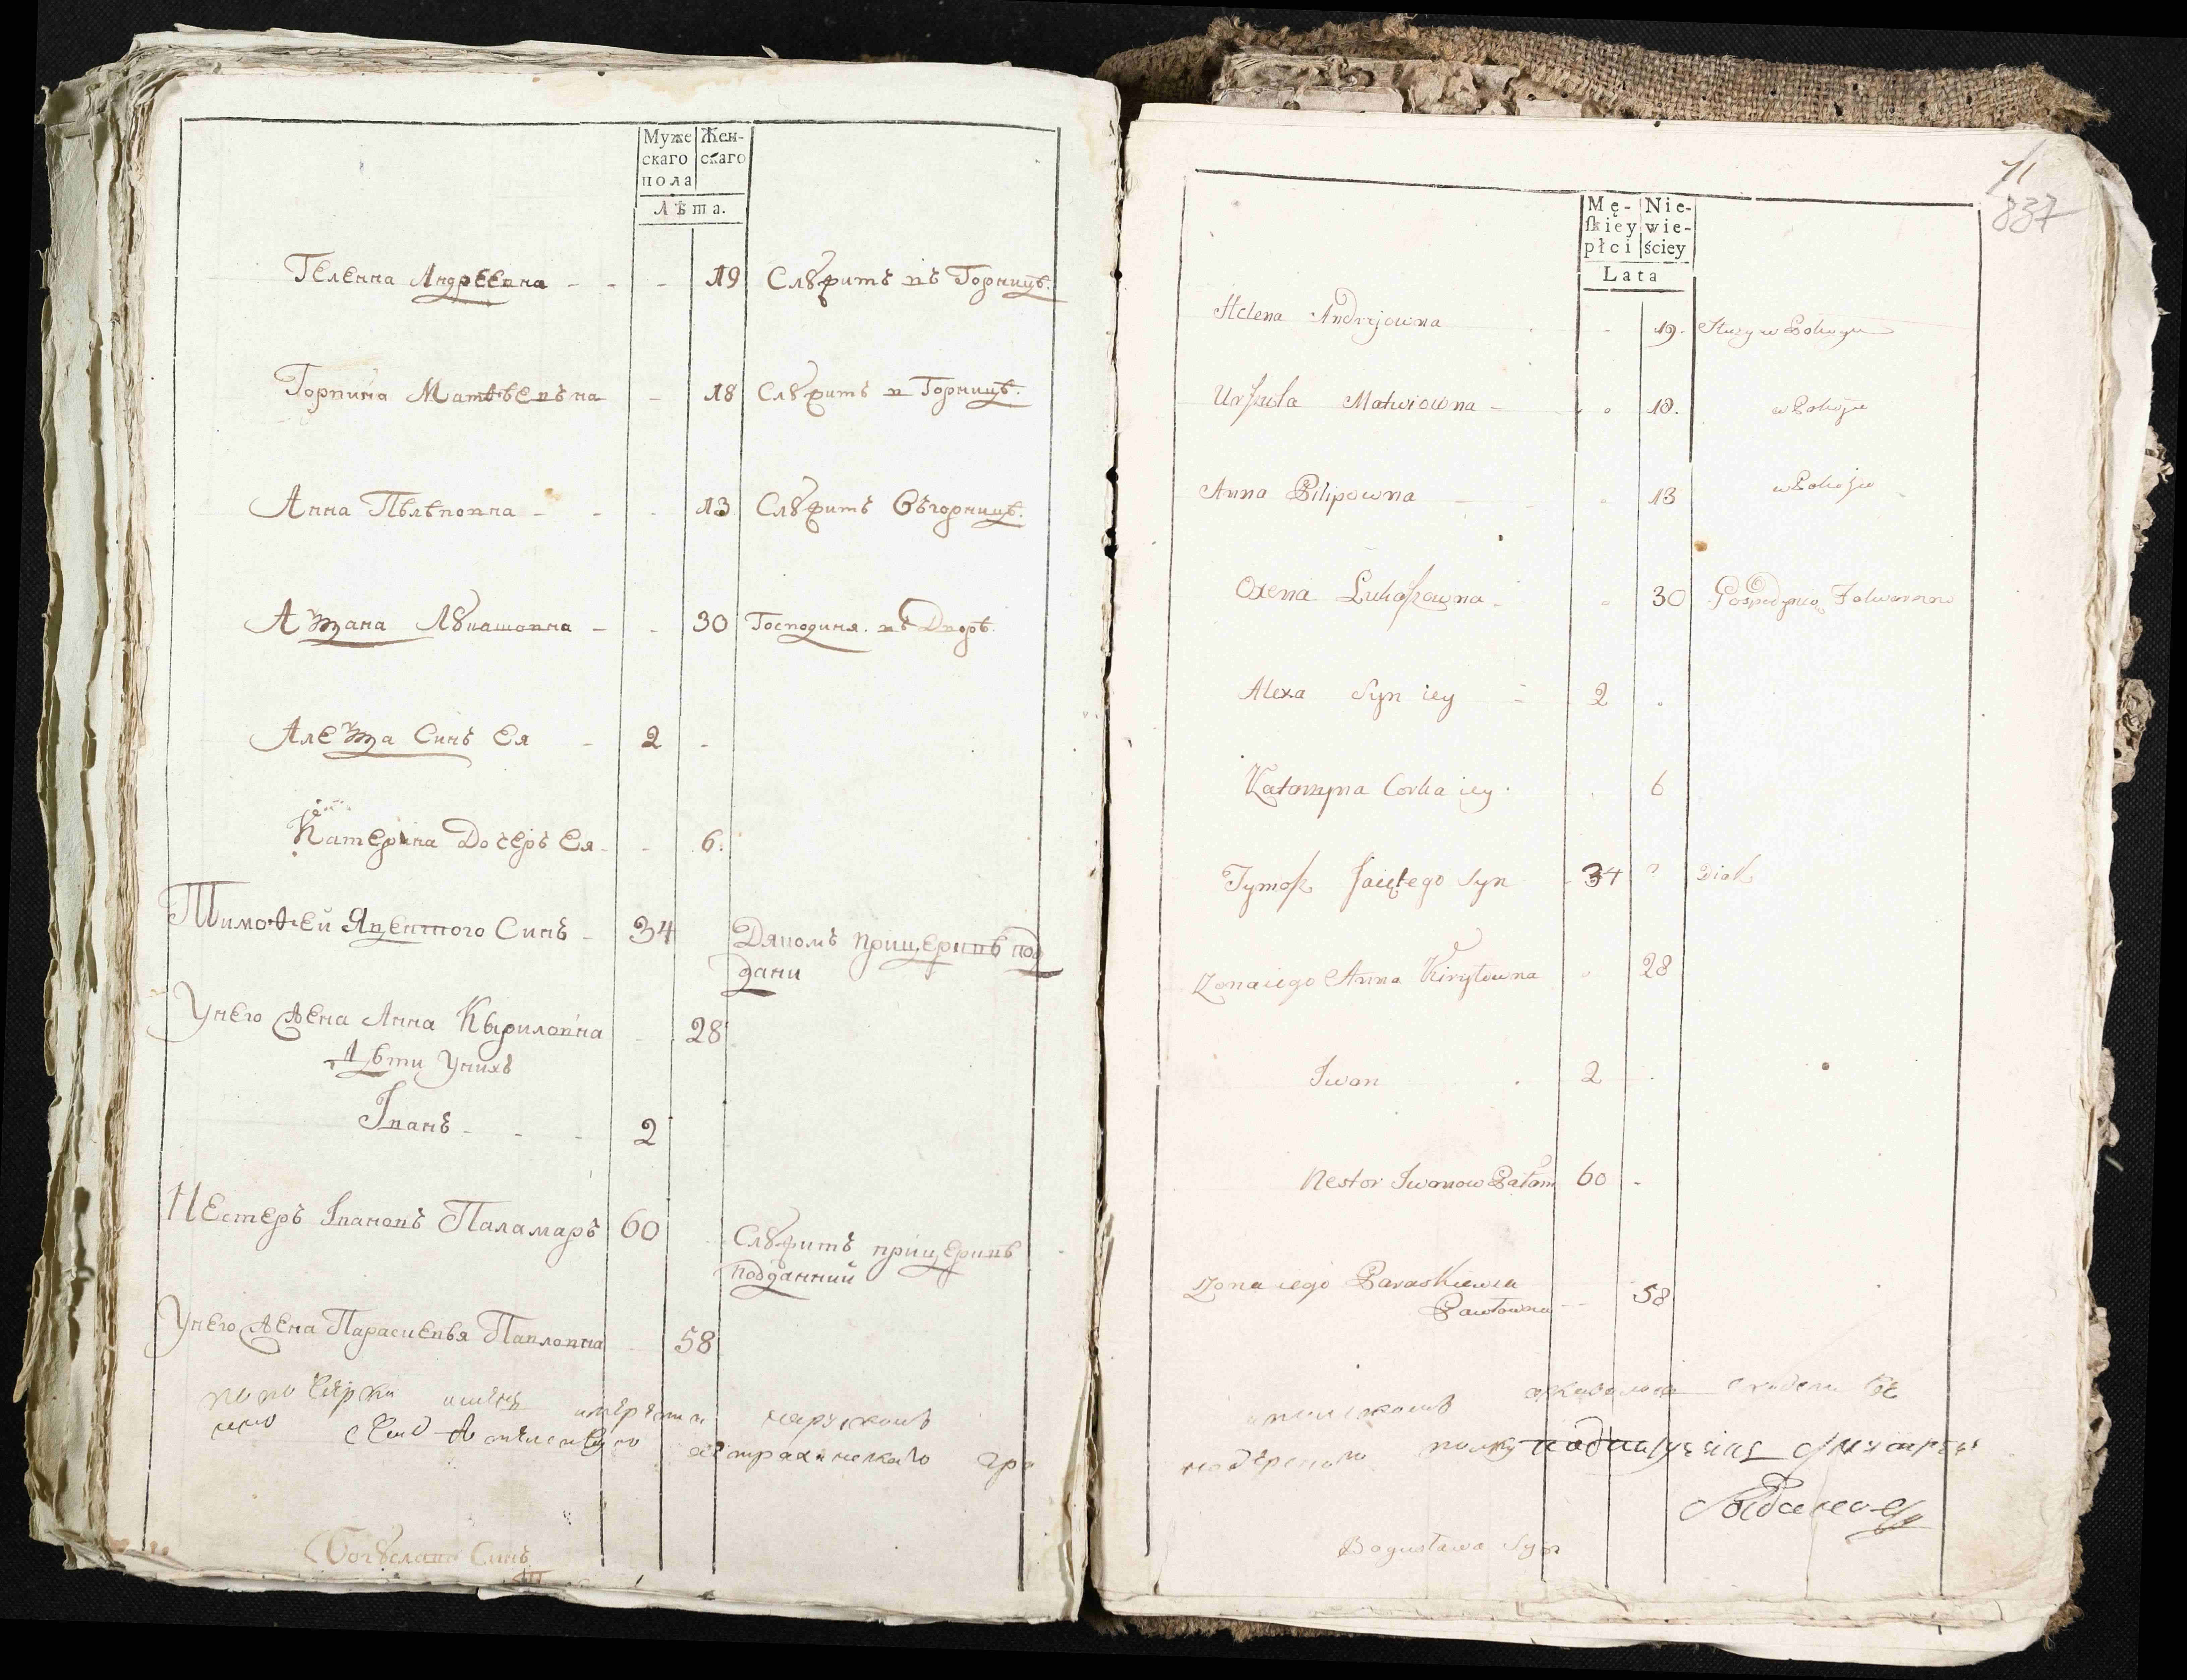 Муже Жен-
скаго скаго
пола
Лѣта.
Геленна Андреевна - - - 19 Слȣжитъ въ Горницѣ.
Горпина Матвѣевъна - 18 Слȣжитъ в Горницѣ.
Анна Пѣлѣповна - - - 13 Слȣжитъ Въгорницѣ.
Аѯана Лȣкашовна - - 30 Господиня. въ Дворѣ.
Алеѯа Синъ Ея - 2 -
Катерина Дочеръ Ея - - 6.
Тимоѳей Яцентого Синъ - 34 Дякомъ прицерквѣ под
дани
Унего Жена Анна Кырыловна - - 28
Дѣти Унихъ
Іванъ - - - 2
Нестеръ Івановъ Паламаръ 60 Слȣжитъ прицерквѣ
подданний
Унего Жена Парасковья Павловна 58
астраханскаго гре
Богȣслава Синъ
71
837
Mę- Nie-
ſkiey wie-
płci ściey
Lata
Helena Andrzjowna - 19. Służy w Pokoyu
Urszula Matwiowna - 18. w Pokoju
Anna Pilipowna - 13 w Pokoju
Oxena Lukaszowna - 30 Gospodynią Folwarku
Alexa Syn iey - 2
Katarzyna Corka iey. 6
Tymosz Jacętego Syn 34 Diak
Zona iego Anna Kiryłowna 28
Iwan . 2
Nestor Iwanow Pałam 60 -
Zona iego Paraskiewia
Pawłowna - - 58
надерскаго полку
Bogusława Syn